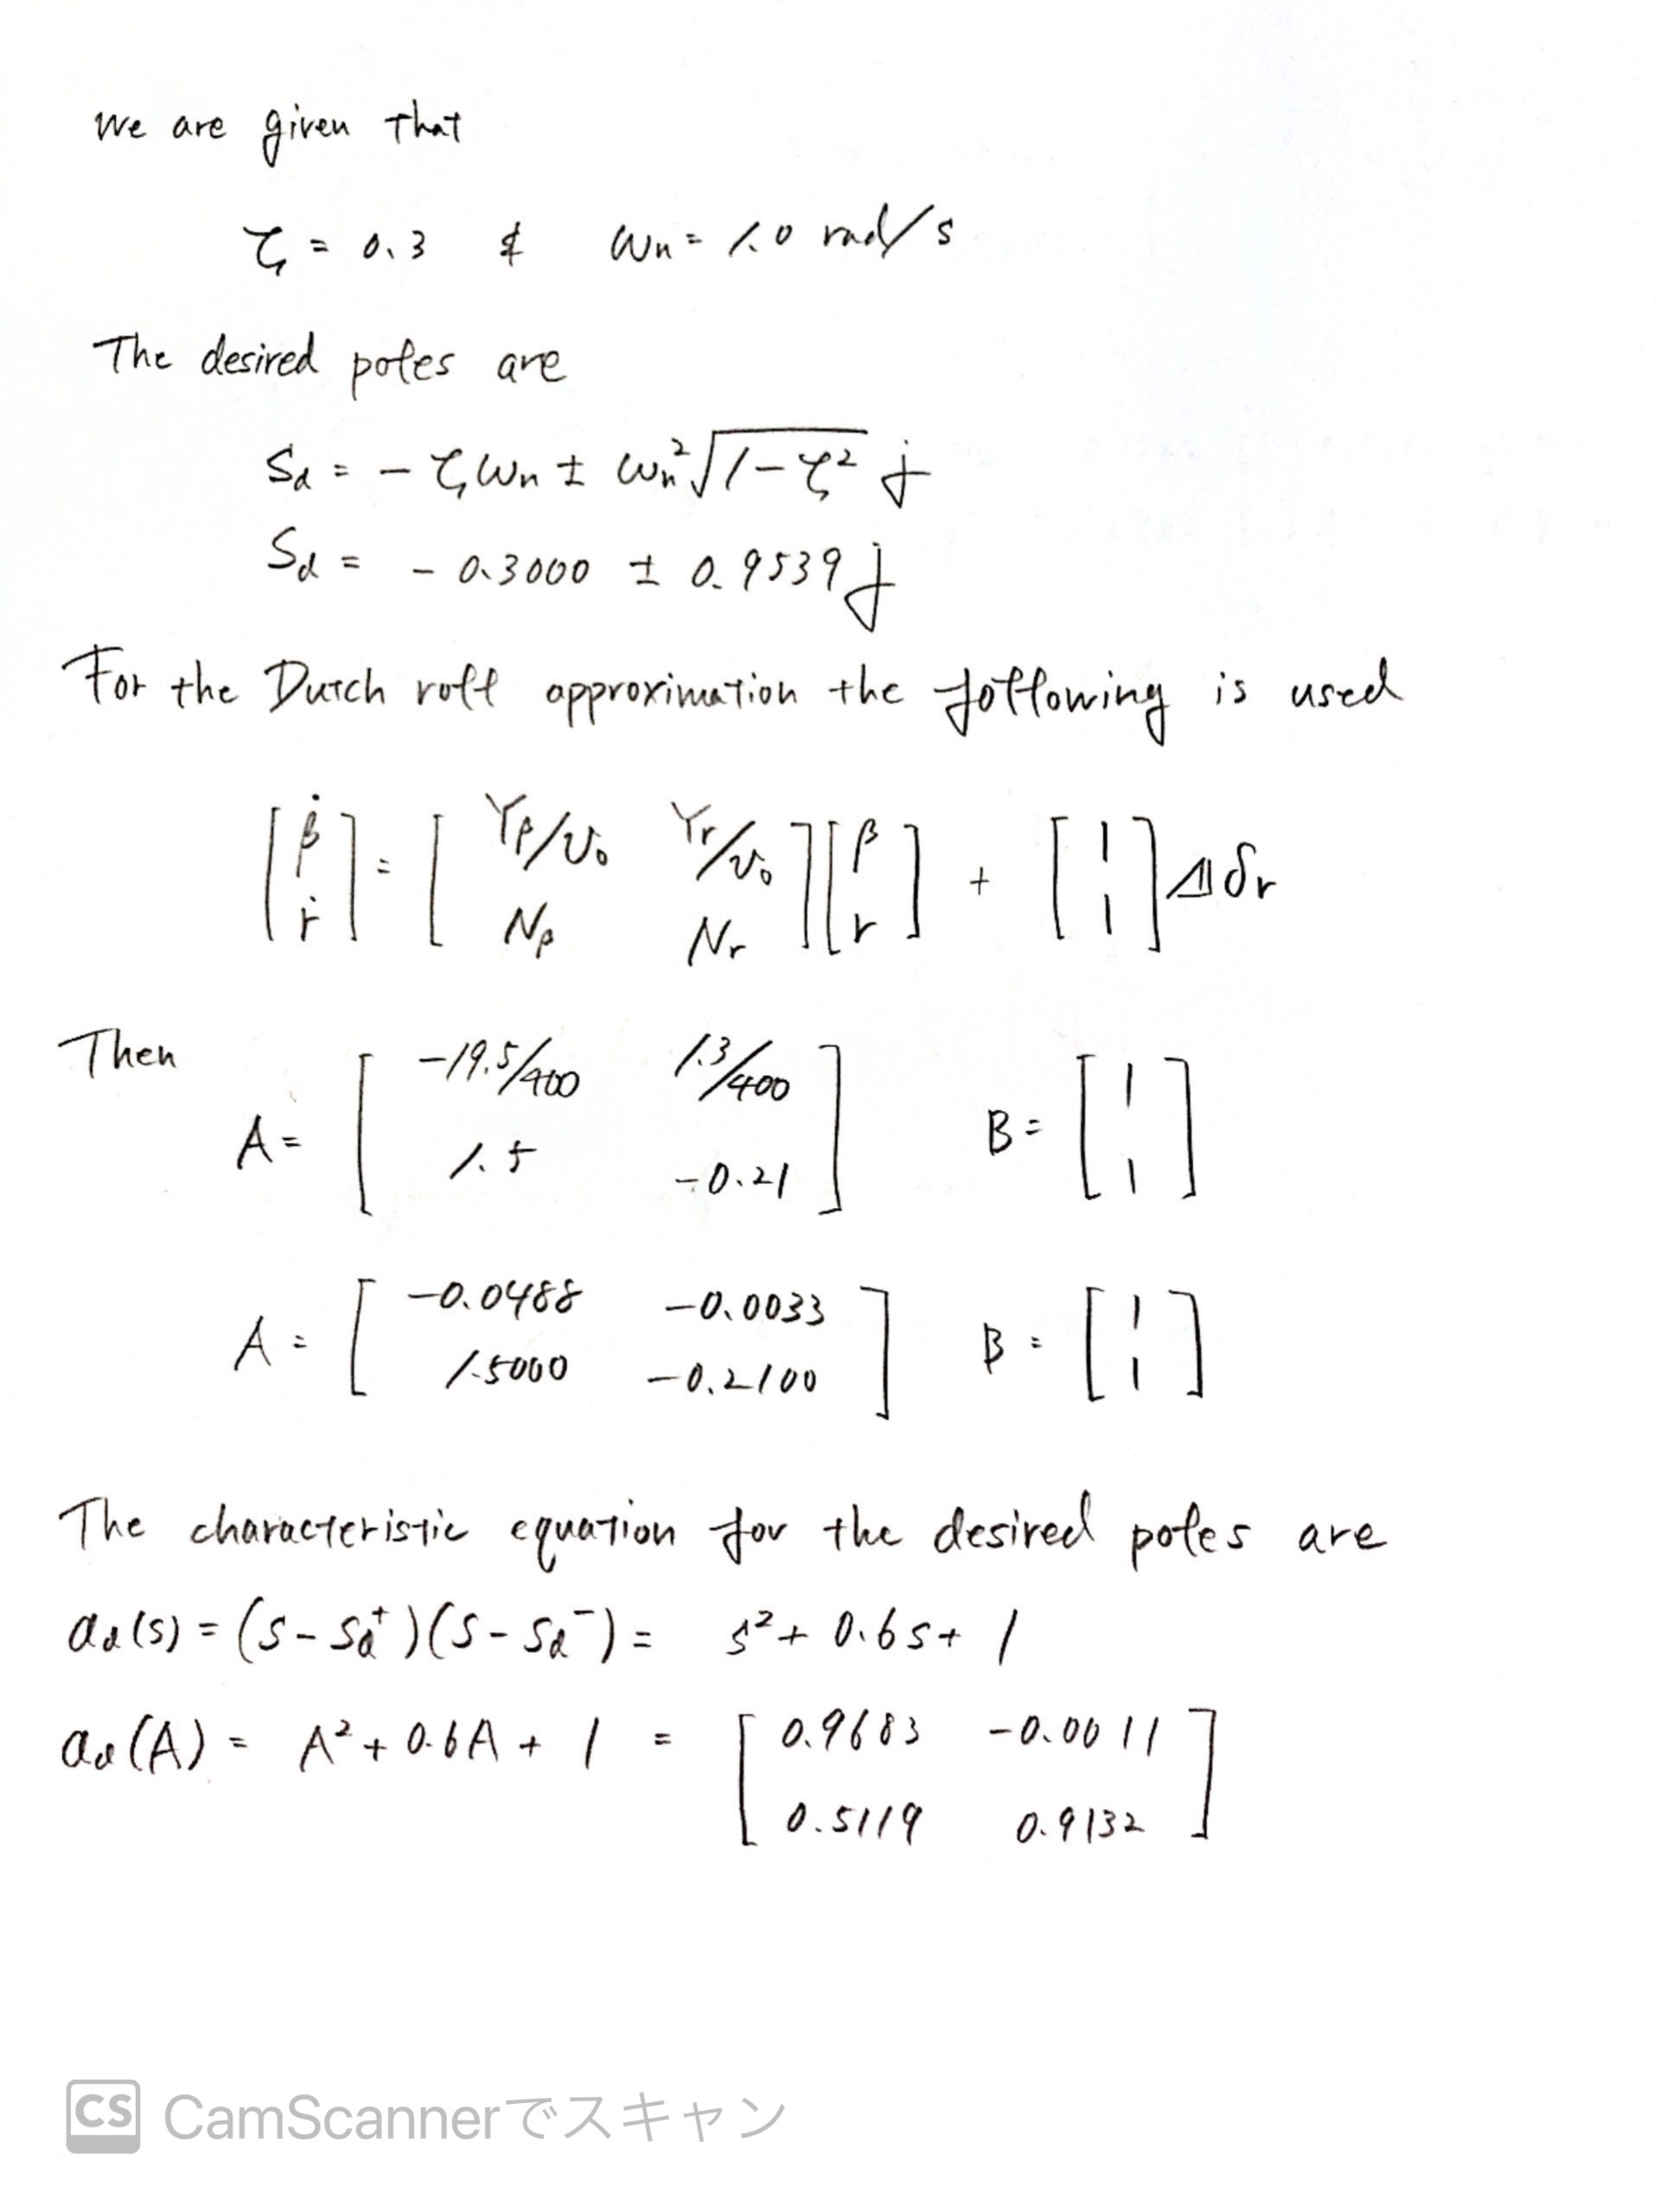 we are given that
ζ = 0.3 & ωn = 1.0 rad/s
The desired poles are
Sd = - ζ ωn ± ωn² √(1-ζ²) j
Sd = - 0.3000 ± 0.9539 j
For the Dutch roll approximation the following is used
[β̇ ; ṙ] = [Yβ/U₀ Yr/U₀ ; Nβ Nr] [β ; r] + [1 ; 1] Δδr
Then
A = [-19.5/400 1.3/400 ; 1.5 -0.21] B = [1 ; 1]
A = [-0.0488 -0.0033 ; 1.5000 -0.2100] B = [1 ; 1]
The characteristic equation for the desired poles are
ad(s) = (s - sd⁺)(s - sd⁻) = s² + 0.6s + 1
ad(A) = A² + 0.6A + 1 = [0.9683 -0.0011 ; 0.5119 0.9132]
CS CamScannerでスキャン